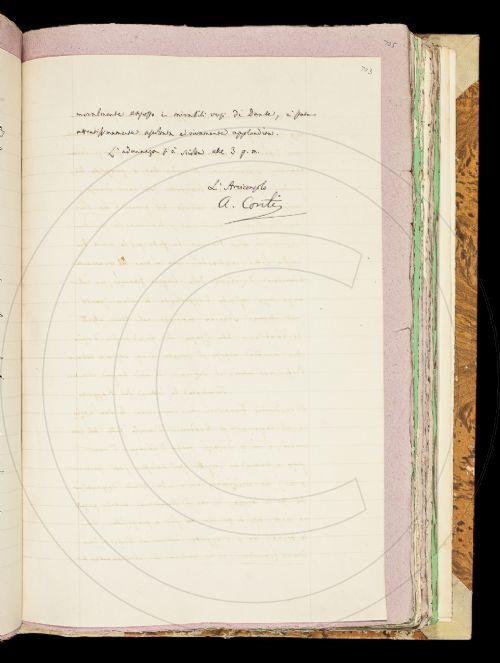 705
703
moralmente esposto i mirabili versi di Dante, è stato
attentissimamente ascoltato e vivamente applaudito.
L'adunanza si è sciolta alle 3 p. m.
L'Arciconsolo
A. Conti